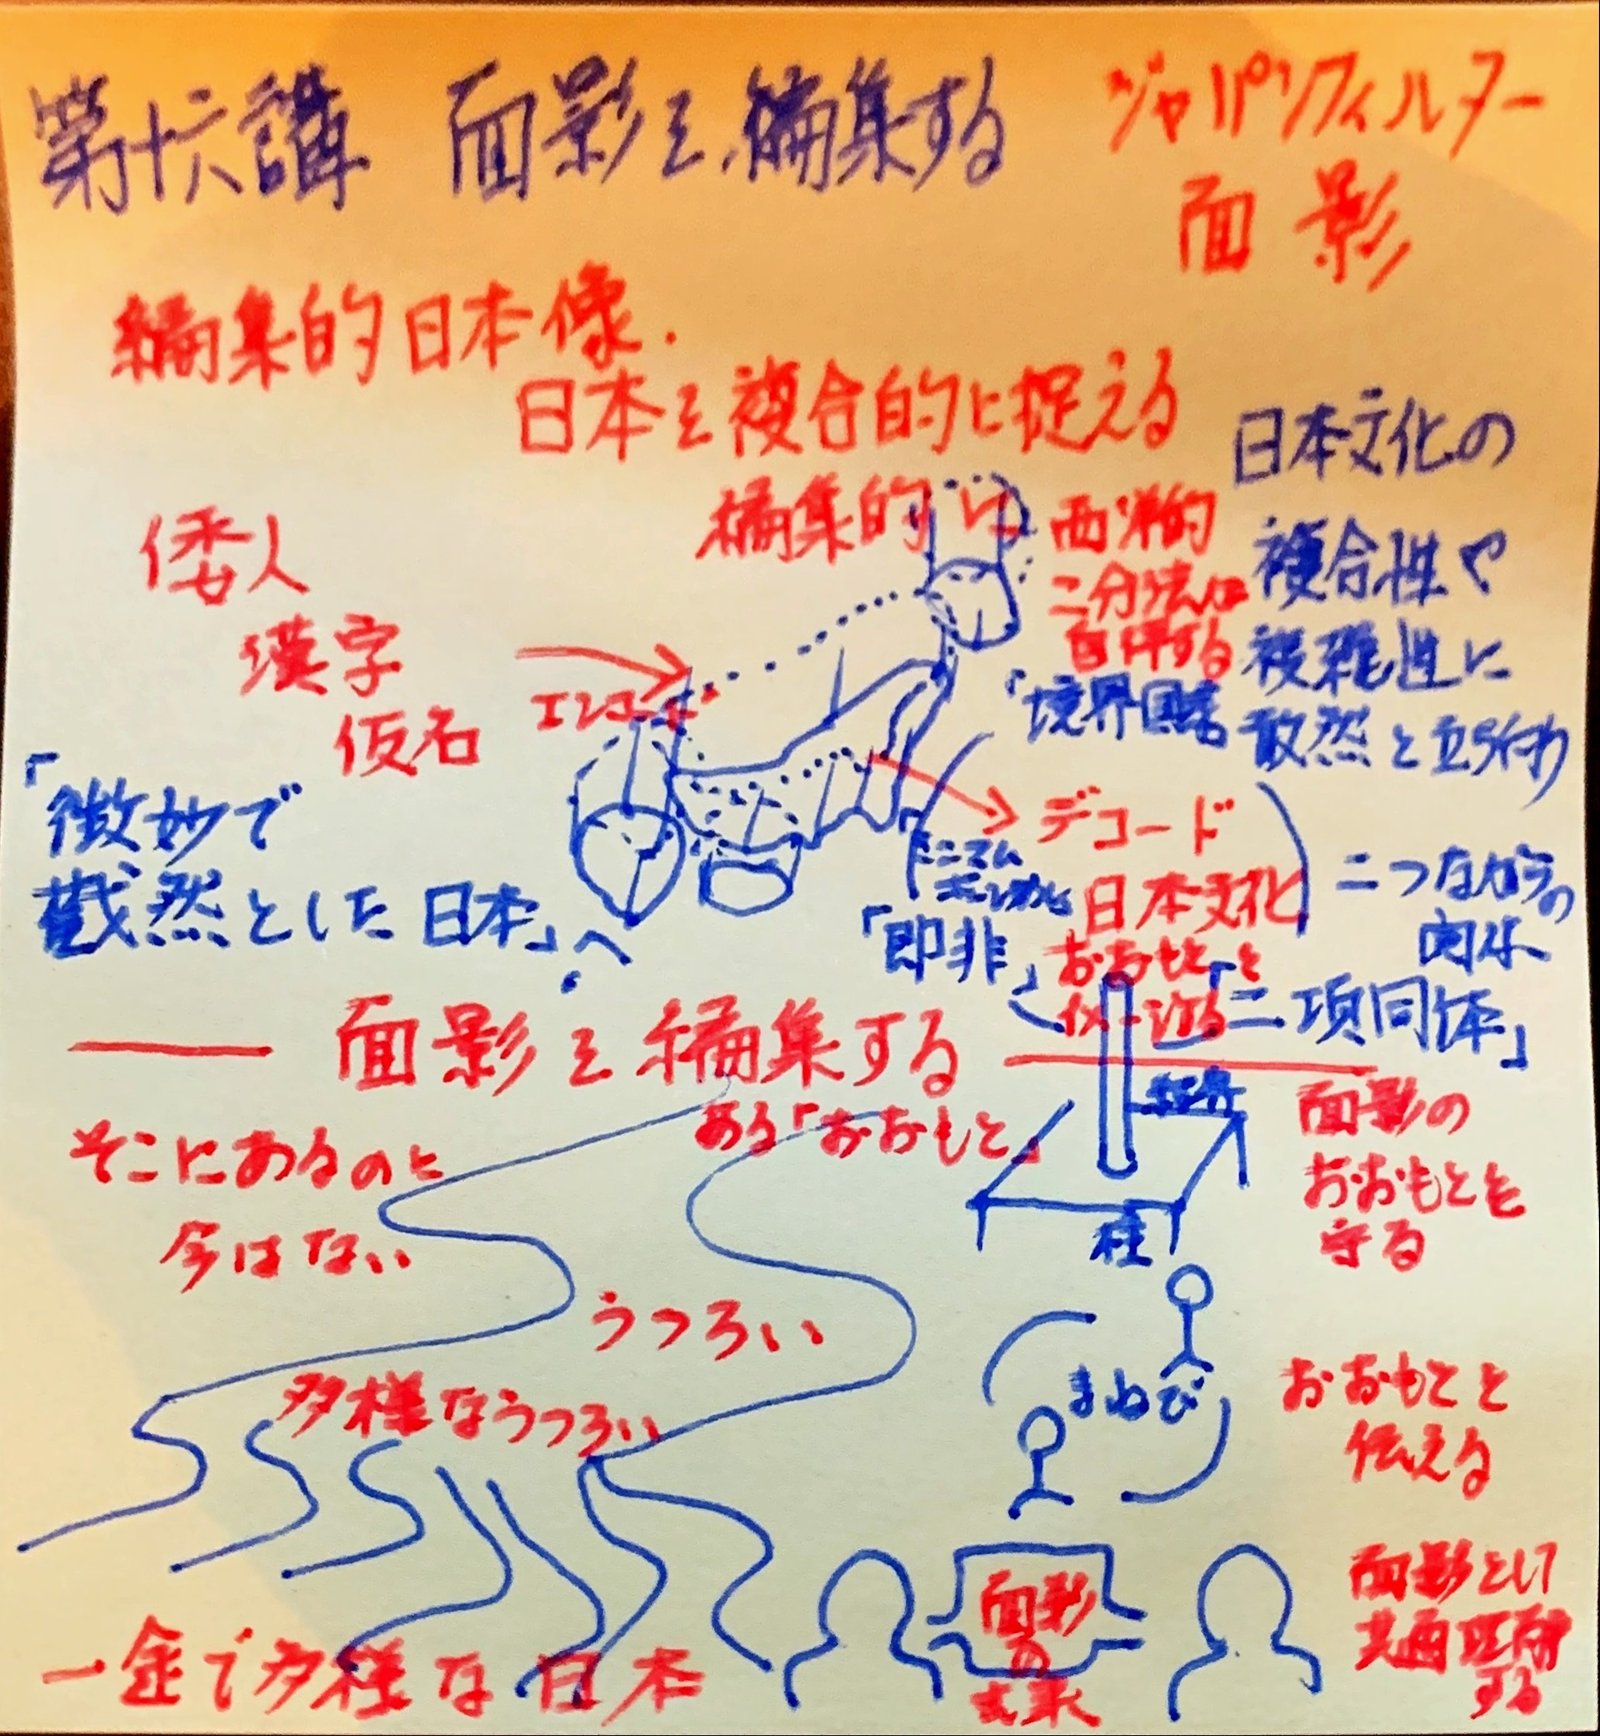 第十六講 面影を編集する
ジャパンフィルター
面影
編集的日本像.
日本を複合的に捉える
編集的に
倭人
漢字
仮名
エンコード
西洋的
二分法に
「境界国家
日本文化の
複合性や
複雑性に
敢然と立ち向かう
「微妙で
截然とした日本」へ
デコード
日本文化
おおもとを
「即非」
二つながらの
関係
「二項同体」
面影を編集する
そこにあるのに
今はない
ある「おおもと」
うつろい
多様なうつろい
一途で多様な日本
柱
面影の
おおもとを
守る
まねび
おおもとを
伝える
面影
の
面影として
共画
する